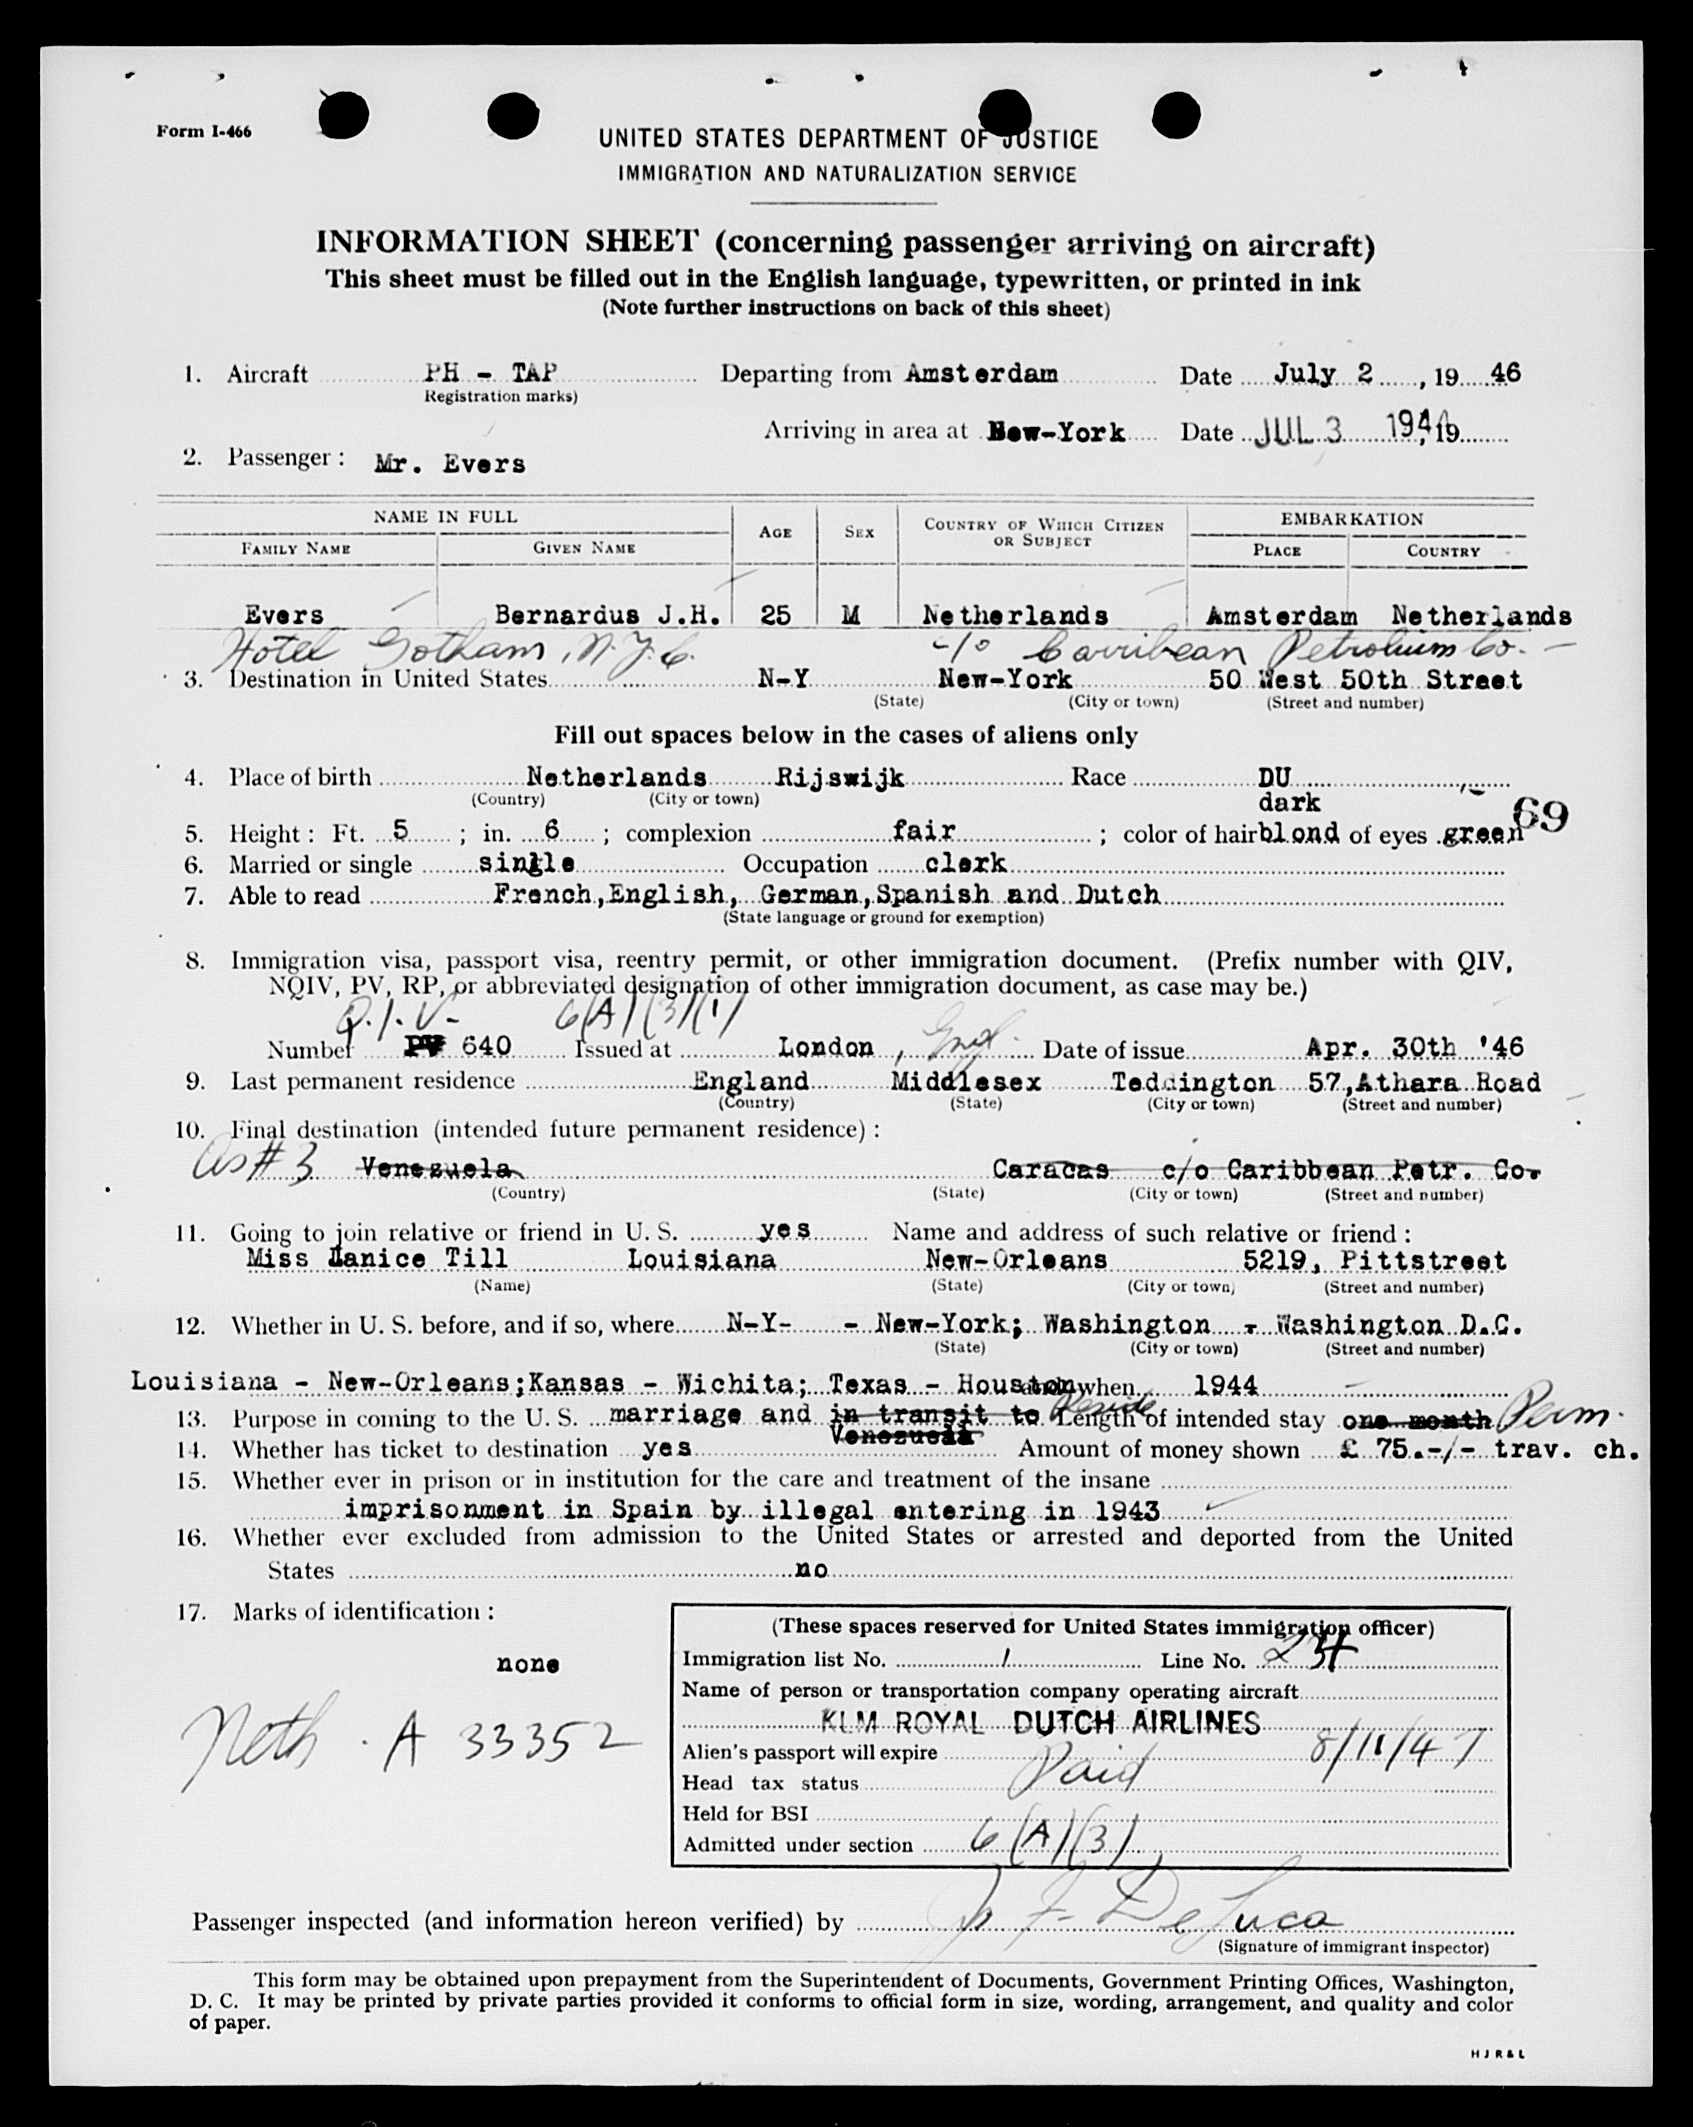 Form I-466
UNITED STATES DEPARTMENT OF JUSTICE
IMMIGRATION AND NATURALIZATION SERVICE
INFORMATION SHEET (concerning passenger arriving on aircraft)
This sheet must be filled out in the English language, typewritten, or printed in ink
(Note further instructions on back of this sheet)
1. Aircraft PH - TAP Departing from Amsterdam Date July 2, 19 46
Registration marks)
Arriving in area at New-York Date JUL 3 1946, 19
2. Passenger: Mr. Evers
NAME IN FULL AGE SEX COUNTRY OF WHICH CITIZEN OR SUBJECT EMBARKATION
FAMILY NAME GIVEN NAME PLACE COUNTRY
Evers Bernardus J.H. 25 M Netherlands Amsterdam Netherlands
Hotel Gotham, N.Y.C. c/o Carribean Petroleum Co.
3. Destination in United States N-Y New-York 50 West 50th Street
(State) (City or town) (Street and number)
Fill out spaces below in the cases of aliens only
4. Place of birth Netherlands Rijswijk Race DU
(Country) (City or town) dark
69
5. Height: Ft. 5; in. 6; complexion fair; color of hair blond of eyes green
6. Married or single single Occupation clerk
7. Able to read French, English, German, Spanish and Dutch
(State language or ground for exemption)
8. Immigration visa, passport visa, reentry permit, or other immigration document. (Prefix number with QIV,
NQIV, PV, RP, or abbreviated designation of other immigration document, as case may be.)
Q.I.V. 6(A)(3)(1)
Number PV 640 Issued at London, Engl. Date of issue Apr. 30th '46
9. Last permanent residence England Middlesex Teddington 57, Athara Road
(Country) (State) (City or town) (Street and number)
10. Final destination (intended future permanent residence):
As #3 Venezuela Caracas c/o Caribbean Petr. Co.
(Country) (State) (City or town) (Street and number)
11. Going to join relative or friend in U. S. yes Name and address of such relative or friend:
Miss Janice Till Louisiana New-Orleans 5219, Pittstreet
(Name) (State) (City or town) (Street and number)
12. Whether in U. S. before, and if so, where N-Y- - New-York; Washington - Washington D.C.
(State) (City or town) (Street and number)
Louisiana - New-Orleans; Kansas - Wichita; Texas - Houston and when 1944
13. Purpose in coming to the U. S. marriage and in transit to Venezuela Reside Length of intended stay one month Perm.
14. Whether has ticket to destination yes Amount of money shown £ 75.-/- trav. ch.
15. Whether ever in prison or in institution for the care and treatment of the insane
imprisonment in Spain by illegal entering in 1943
16. Whether ever excluded from admission to the United States or arrested and deported from the United
States no
17. Marks of identification:
none
Neth. A 33352
(These spaces reserved for United States immigration officer)
Immigration list No. 1 Line No.
Name of person or transportation company operating aircraft
KLM ROYAL DUTCH AIRLINES
Alien's passport will expire 8/11/47
Head tax status Paid
Held for BSI
Admitted under section 6(A)(3)
Passenger inspected (and information hereon verified) by J. F. De Luca
(Signature of immigrant inspector)
This form may be obtained upon prepayment from the Superintendent of Documents, Government Printing Offices, Washington,
D. C. It may be printed by private parties provided it conforms to official form in size, wording, arrangement, and quality and color
of paper.
H J R & L